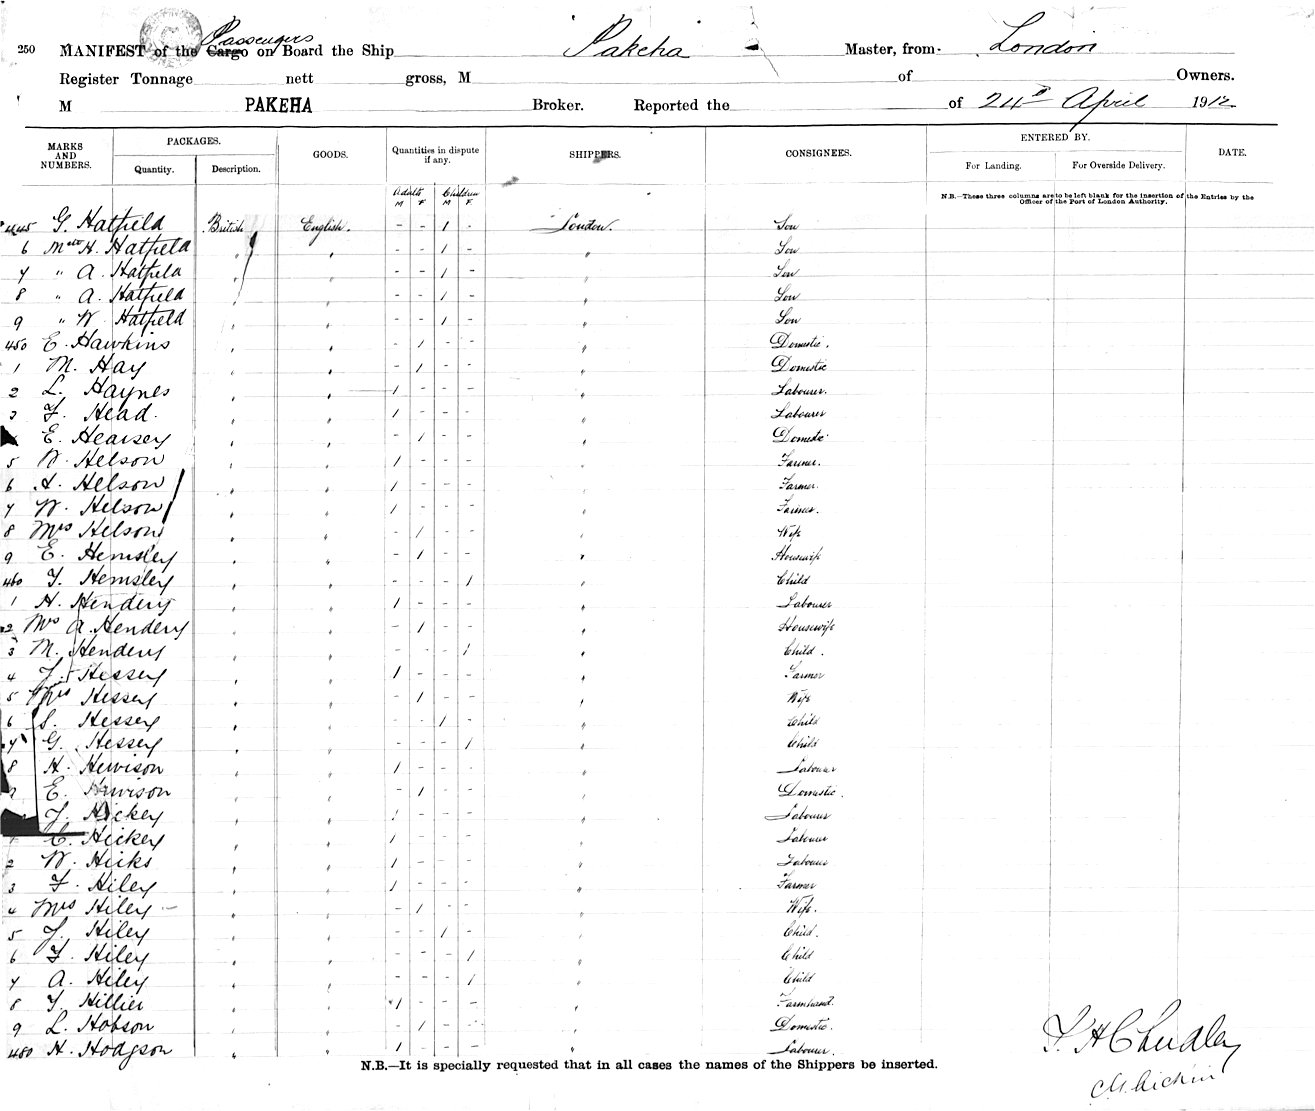 Passengers
250 MANIFEST of the Cargo on Board the Ship Pakeha Master, from London
Register Tonnage nett gross, M of Owners.
M PAKEHA Broker. Reported the of 24th April 1912
MARKS AND NUMBERS. PACKAGES. Quantity. Description. GOODS. Quantities in dispute if any. SHIPPERS. CONSIGNEES. ENTERED BY. For Landing. For Overside Delivery. DATE.
Adults Children
M F M F
N.B.—These three columns are to be left blank for the insertion of the Entries by the
Officer of the Port of London Authority.
445 G. Hatfield British English. - - 1 - London. Son
6 Mstr H. Hatfield " " - - 1 - " Son
7 " A. Hatfield " " - - 1 - " Son
8 " A. Hatfield " " - - 1 - " Son
9 " W. Hatfield " " - - 1 - " Son
450 E. Hawkins " " - 1 - - " Domestic.
1 M. Hay " " - 1 - - " Domestic
2 L. Haynes " " 1 - - - " Labourer.
3 F. Head. " " 1 - - - " Labourer
E. Hearsey " " - 1 - - " Domestic
5 W. Helson " " 1 - - - " Farmer.
6 A. Helson " " 1 - - - " Farmer.
7 W. Helson " " 1 - - - " Farmer.
8 Mrs Helson " " - 1 - - " Wife
9 E. Hemsley " " - 1 - - " Housewife
460 T. Hemsley " " - - - 1 " Child
1 H. Hendery " " 1 - - - " Labourer
2 Mrs A. Hendery " " - 1 - - " Housewife
3 M. Hendery " " - - - 1 " Child.
4 J. Hessey " " 1 - - - " Farmer
5 Mrs Hessey " " - 1 - - " Wife
6 S. Hessey " " - - 1 - " Child
7 G. Hessey " " - - - 1 " Child
8 H. Hewison " " 1 - - - " Labourer
9 E. Hewison " " - 1 - - " Domestic.
J. Hickey " " 1 - - - " Labourer
1 C. Hickey " " 1 - - - " Labourer
2 W. Hicks " " 1 - - - " Labourer
3 F. Hiley " " 1 - - - " Farmer
4 Mrs Hiley " " - 1 - - " Wife.
5 J. Hiley " " - - 1 - " Child.
6 F. Hiley " " - - - 1 " Child
7 A. Hiley " " - - - 1 " Child
8 T. Hillier " " 1 - - - " Farmhand.
9 L. Hobson " " - 1 - - " Domestic.
480 H. Hodgson " " 1 - - - " Labourer.
F H Chudley
N.B.—It is specially requested that in all cases the names of the Shippers be inserted.